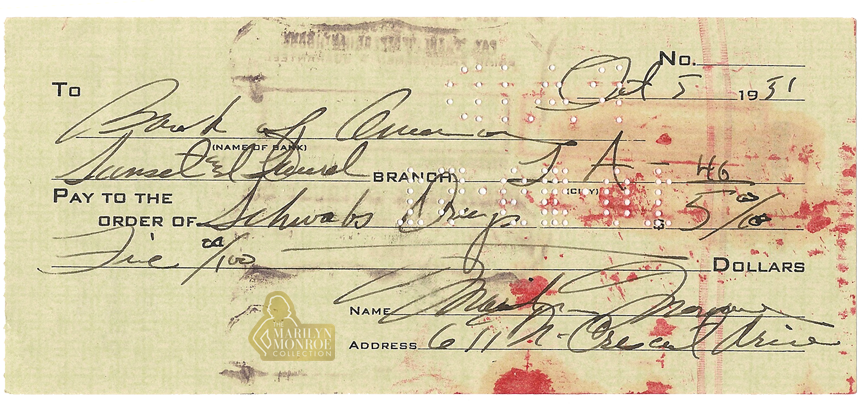 No.
Oct 5 1951
To
Bank of America
(NAME OF BANK)
Sunset & Laurel BRANCH L A - 46
(CITY)
PAY TO THE
ORDER OF Schwabs Drugs $ 5 00/100
Five 00/100 DOLLARS
NAME Marilyn Monroe
ADDRESS 611 N. Crescent Drive
THE
MARILYN
MONROE
COLLECTION